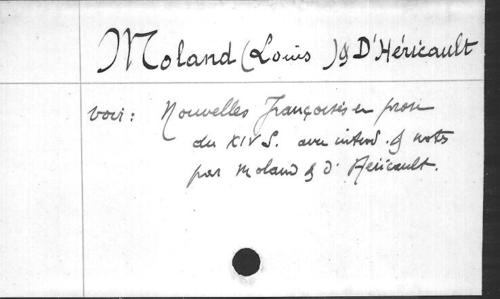 Moland (Louis ) & D'Héricault
voir : Nouvelles Françoises en prose
du XIV S. avec introd. & nots
par Moland & d'Héricault.